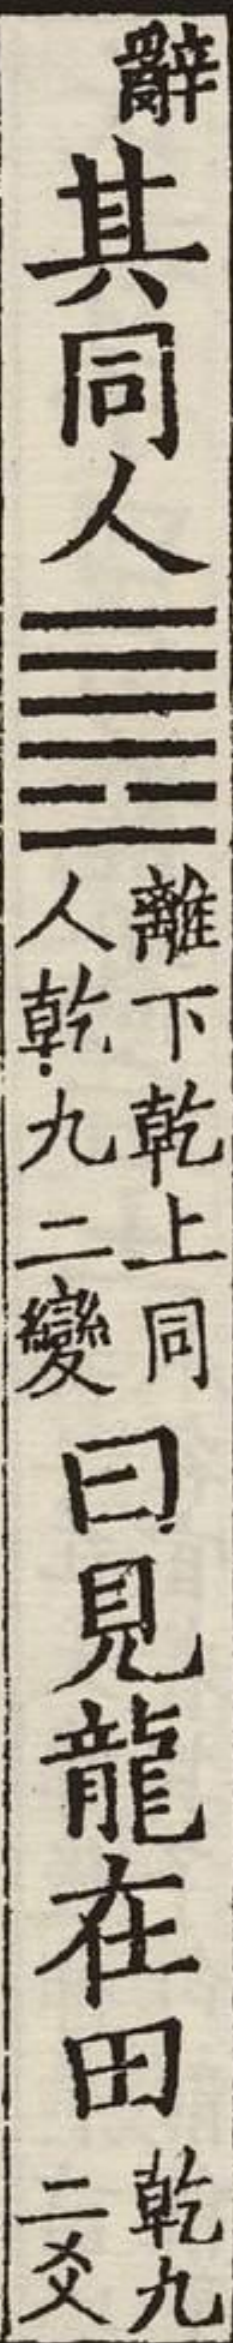 辭
其同人䷌
離下乾上同
人乾九二變
曰見龍在田
乾九
二爻